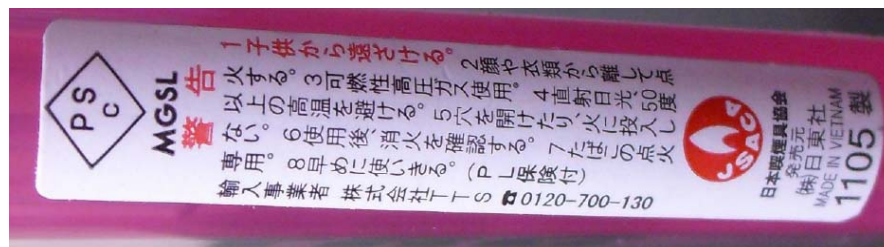 PSC
MGSL
警告
1子供から遠ざける。2顔や衣類から離して点
火する。3可燃性高圧ガス使用。4直射日光、50度
以上の高温を避ける。5穴を開けたり、火に投入し
ない。6使用後、消火を確認する。7たばこの点火
専用。8早めに使いきる。(PL保険付)
輸入事業者 株式会社TTS ☎0120-700-130
JSACA
日本喫煙具協会
発売元
(株)日東社
MADE IN VIETNAM
1105 製